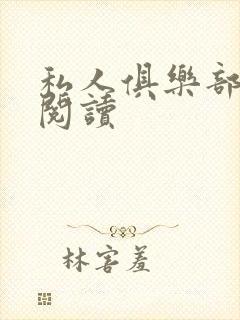 私人俱樂部
閱讀
林害羞